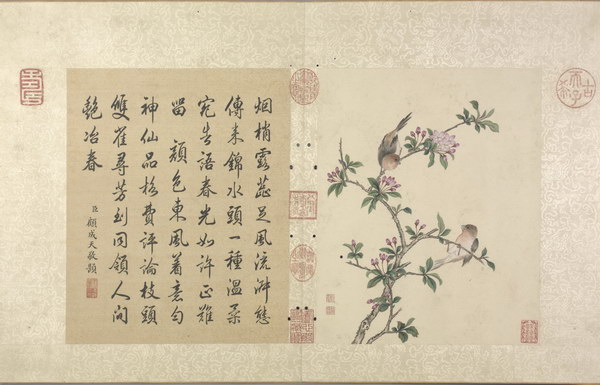 烟梢露蕊足風流態
傳來錦水頭一種溫柔
宛告語春光如許正難
留 顏色東風着意勻
神仙品格費評論枝頭
雙雀尋芳到同領人間
艷冶春
臣顧成天敬題